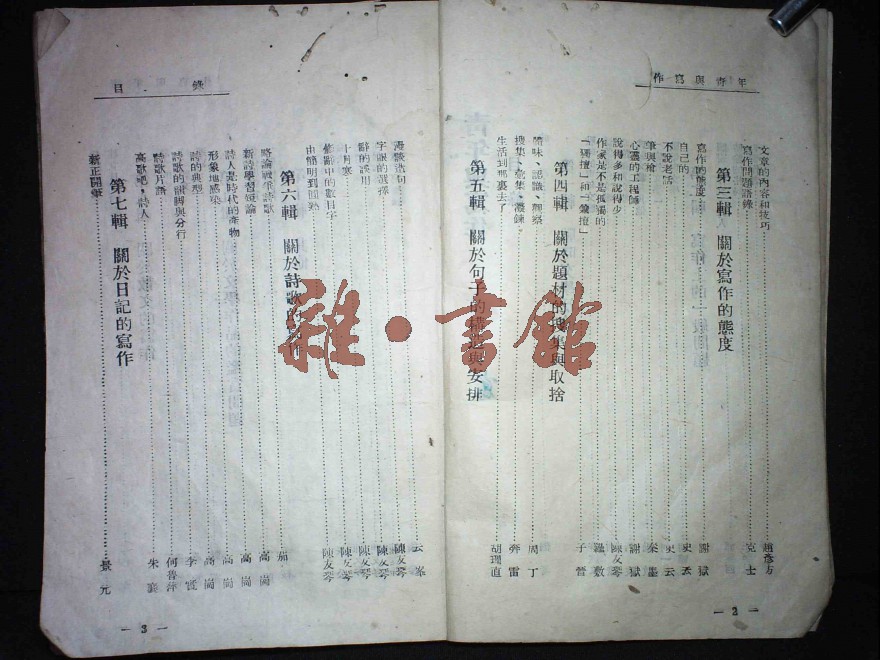 作寫與青年
文章的內容和技巧 趙彥方
寫作問題語錄 克士
第三輯 關於寫作的態度
寫作的態度 謝獄
自己的 史云
不說老話 史云
筆與槍 朱墨
心靈的工程師 謝獄
說得多和說得少 陳友琴
作家是不是孤獨的
「獨擅」和「籠擅」 子營
第四輯 關於題材的搜集與取捨
體味、認識、觀察 周丁
搜集、蒐集、 奔雷
生活到那裏去了 胡理直
第五輯 關於句子的構造與安排
— 2 —
目錄
造句 云峯
字眼的選擇 陳友琴
辭的誤用 陳友琴
十月寒 陳友琴
修辭中的數目字 陳友琴
由簡明到圓熟 陳友琴
第六輯 關於詩歌的寫作
略論戰爭詩歌 茄
新詩學習短論 高崗
詩人是時代的產物 高崗
形象地感染 高崗
詩的典型 李
詩歌的韻脚與分行 何普萍
詩歌片語
高歌吧，詩人 朱襄
第七輯 關於日記的寫作
新正開筆 景元
— 3 —
雜·書館